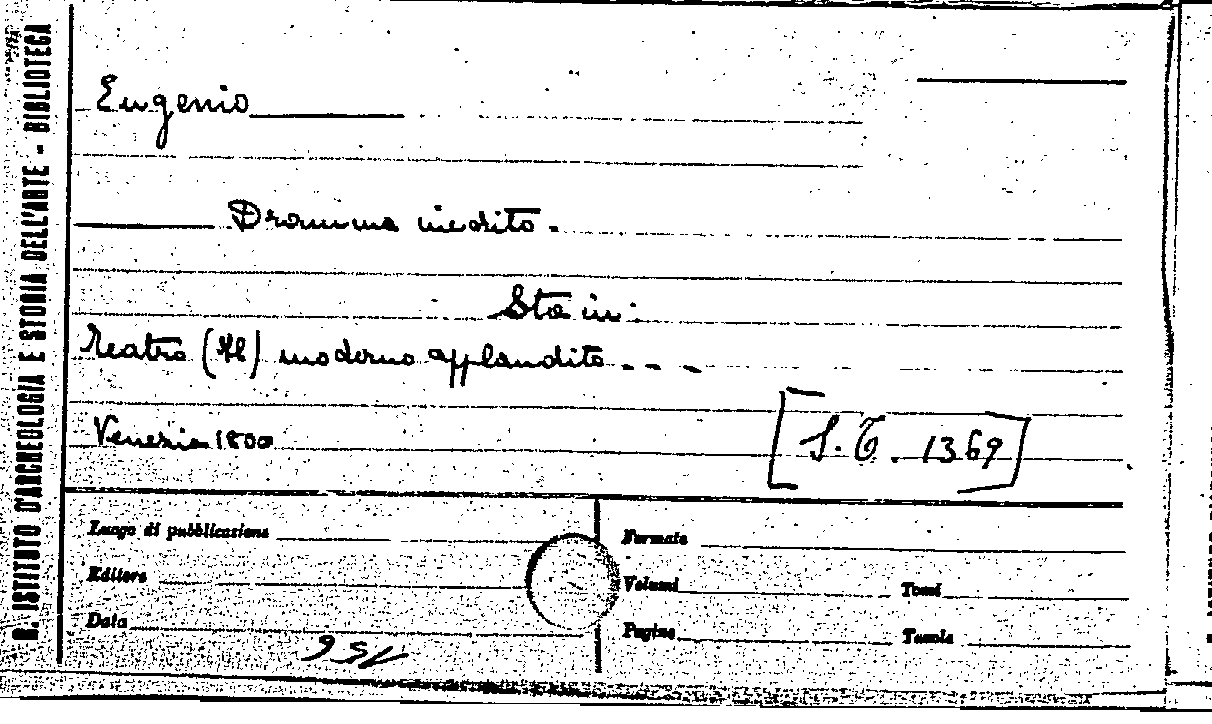 R. ISTITUTO D'ARCHEOLOGIA E STORIA DELL'ARTE - BIBLIOTECA
Eugenio
Dramma inedito.
Sta in:
Teatro (Il) moderno applaudito - - -
Venezia 1800
[S.T. 1369]
Luogo di pubblicazione
Formato
Editore
Volumi
Tomi
Data
Pagine
Tavole